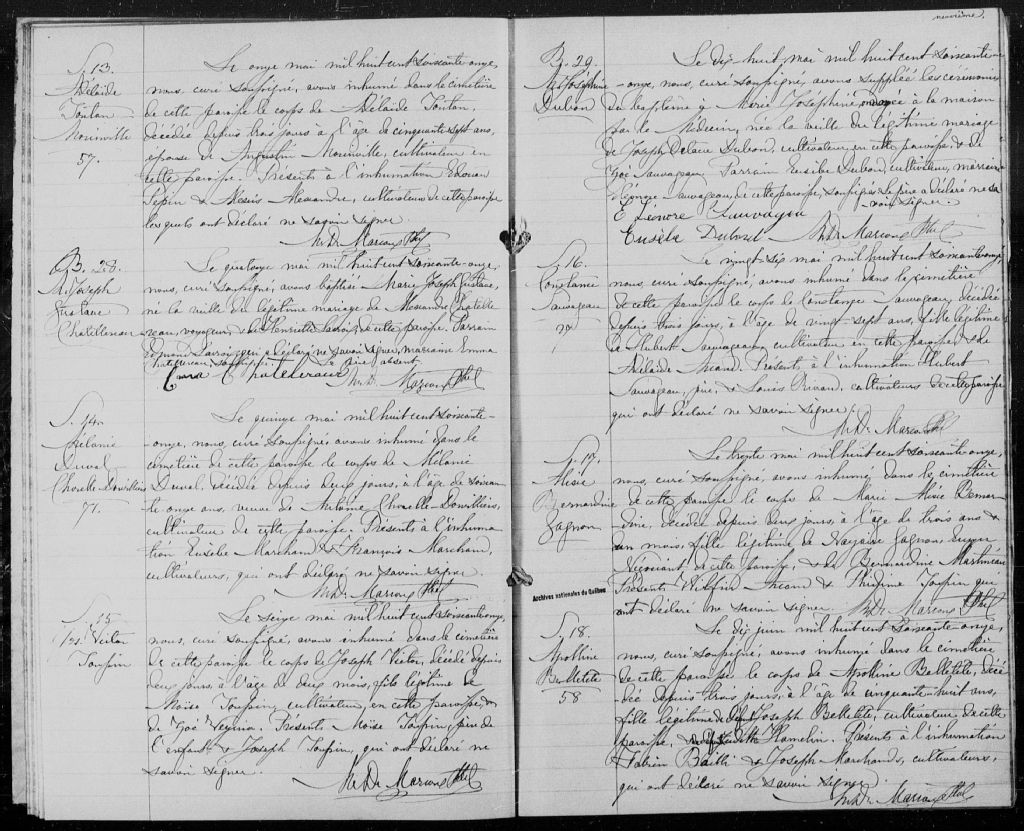 S. 13.
Adélaïde
Toutan
Mourinville
57.
Le onze mai mil huit cent soixante-onze,
nous, curé soussigné, avons inhumé dans le cimetière
de cette paroisse le corps de Adélaïde Toutan,
décédée depuis trois jours à l'âge de cinquante sept ans,
épouse de Augustin Mourinville, cultivateur en
cette paroisse. Présents à l'inhumation Edouard
Pépin & Alexandre, cultivateurs de cette paroisse
lesquels ont déclaré ne savoir signer.
B. 28.
M. Joseph
Gustave
Chatellereau
Le quatorze mai mil huit cent soixante-onze,
nous, curé soussigné, avons baptisé Marie Joseph Gustave,
né la veille du légitime mariage de Alexandre Chatelle-
reau, voyageur, & de Henriette de cette paroisse. Parrain
Edmond qui a déclaré ne savoir signer, marraine Emma
Chatellereau soussignée. Le père absent.
Emma Chatellereau
S. 14.
Mélanie
Duval
Chorelle Donvilliers
71.
Le quinze mai mil huit cent soixante-
-onze, nous, curé soussigné avons inhumé dans le
cimetière de cette paroisse le corps de Mélanie
Duval, décédée depuis deux jours, à l'âge de soixan-
te onze ans, veuve de Antoine Chorelle Donvilliers,
cultivateur de cette paroisse. Présents à l'inhuma-
tion Eusèbe Marchand & François Marchand,
cultivateurs, qui ont déclaré ne savoir signer.
S. 15
Jos. Victor
Toupin
Le seize mai mil huit cent soixante onze,
nous, curé soussigné, avons inhumé dans le cimetière
de cette paroisse le corps de Joseph Victor, décédé depuis
deux jours, à l'âge de deux mois, fils légitime de
Moïse Toupin, cultivateur, en cette paroisse, &
de Zoé. Présents Moïse Toupin, père de
l'enfant & Joseph Toupin, qui ont déclaré ne
savoir signer.
neuvième.
B. 29.
M. Joséphine
Dubord
Le dix huit, mai mil huit cent soixante
-onze, nous, curé soussigné, avons suppléé les cérémonies
du baptême à Marie Joséphine ondoyée à la maison
par le Médecin, née la veille du légitime mariage
de Joseph Delaire Dubord, cultivateur en cette paroisse, & de
Zoé Sauvageau. Parrain Eusèbe Dubord, cultivateur, marraine
Eléonore Sauvageau, de cette paroisse, soussignés. Le père a déclaré ne sa-
voir signer.
Eléonore Sauvagau
Eusèbe Dubord
S. 16.
Constance
Sauvageau
27
Le vingt six mai mil huit cent soixante onze,
nous, curé soussigné, avons inhumé dans le cimetière
de cette paroisse le corps de Constance Sauvageau, décédée
depuis trois jours, à l'âge de vingt sept ans, fille légitime
de Hubert Sauvageau, cultivateur en cette paroisse, & de
Adélaïde Ricard. Présents à l'inhumation Hubert
Sauvageau, père, & Louis Rivard, cultivateurs de cette paroisse
qui ont déclaré ne savoir signer.
S. 17.
Bernardine
Gagnon
Le trente mai mil huit cent soixante onze,
nous, curé soussigné, avons inhumé dans le cimetière
de cette paroisse le corps de Marie Bernar-
dine, décédée depuis deux jours, à l'âge de trois ans &
un mois, fille légitime de Nazaire Gagnon,
Négociant, de cette paroisse, & de Bernardine Martineau
Présents Ricard & Toupin qui
ont déclaré ne savoir signer.
Archives nationales du Québec
S. 18.
Apolline
Belletête
58
Le dix juin mil huit cent soixante-onze,
nous, curé soussigné, avons inhumé dans le cimetière
de cette paroisse le corps de Apolline Belletête, décé-
dée depuis trois jours, à l'âge de cinquante-huit ans,
fille légitime de Joseph Belletête, cultivateur de cette
paroisse, Hamelin. Présents à l'inhumation
Fabien & Joseph Marchand, cultivateurs,
qui ont déclaré ne savoir signer.